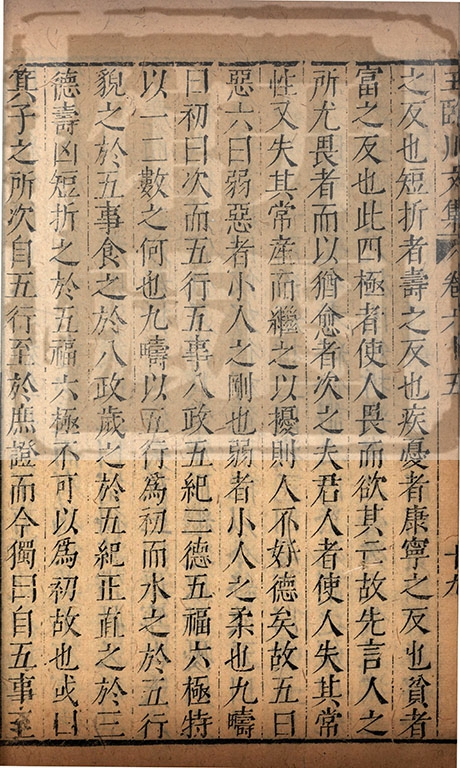 王臨川文集 卷六十五 十九
之反也短折者壽之反也疾憂者康寧之反也貧者
富之反也此四極者使人畏而欲其亡故先言人之
所尤畏者而以猶愈者次之夫君人者使人失其常
性又失其常産而繼之以擾則人不好德矣故五曰
惡六曰弱惡者小人之剛也弱者小人之柔也九疇
曰初曰次而五行五事八政五紀三德五福六極特
以一二數之何也九疇以五行爲初而水之於五行
貌之於五事食之於八政歲之於五紀正直之於三
德壽凶短折之於五福六極不可以爲初故也或曰
箕子之所次自五行至於庶證而今獨曰自五事至